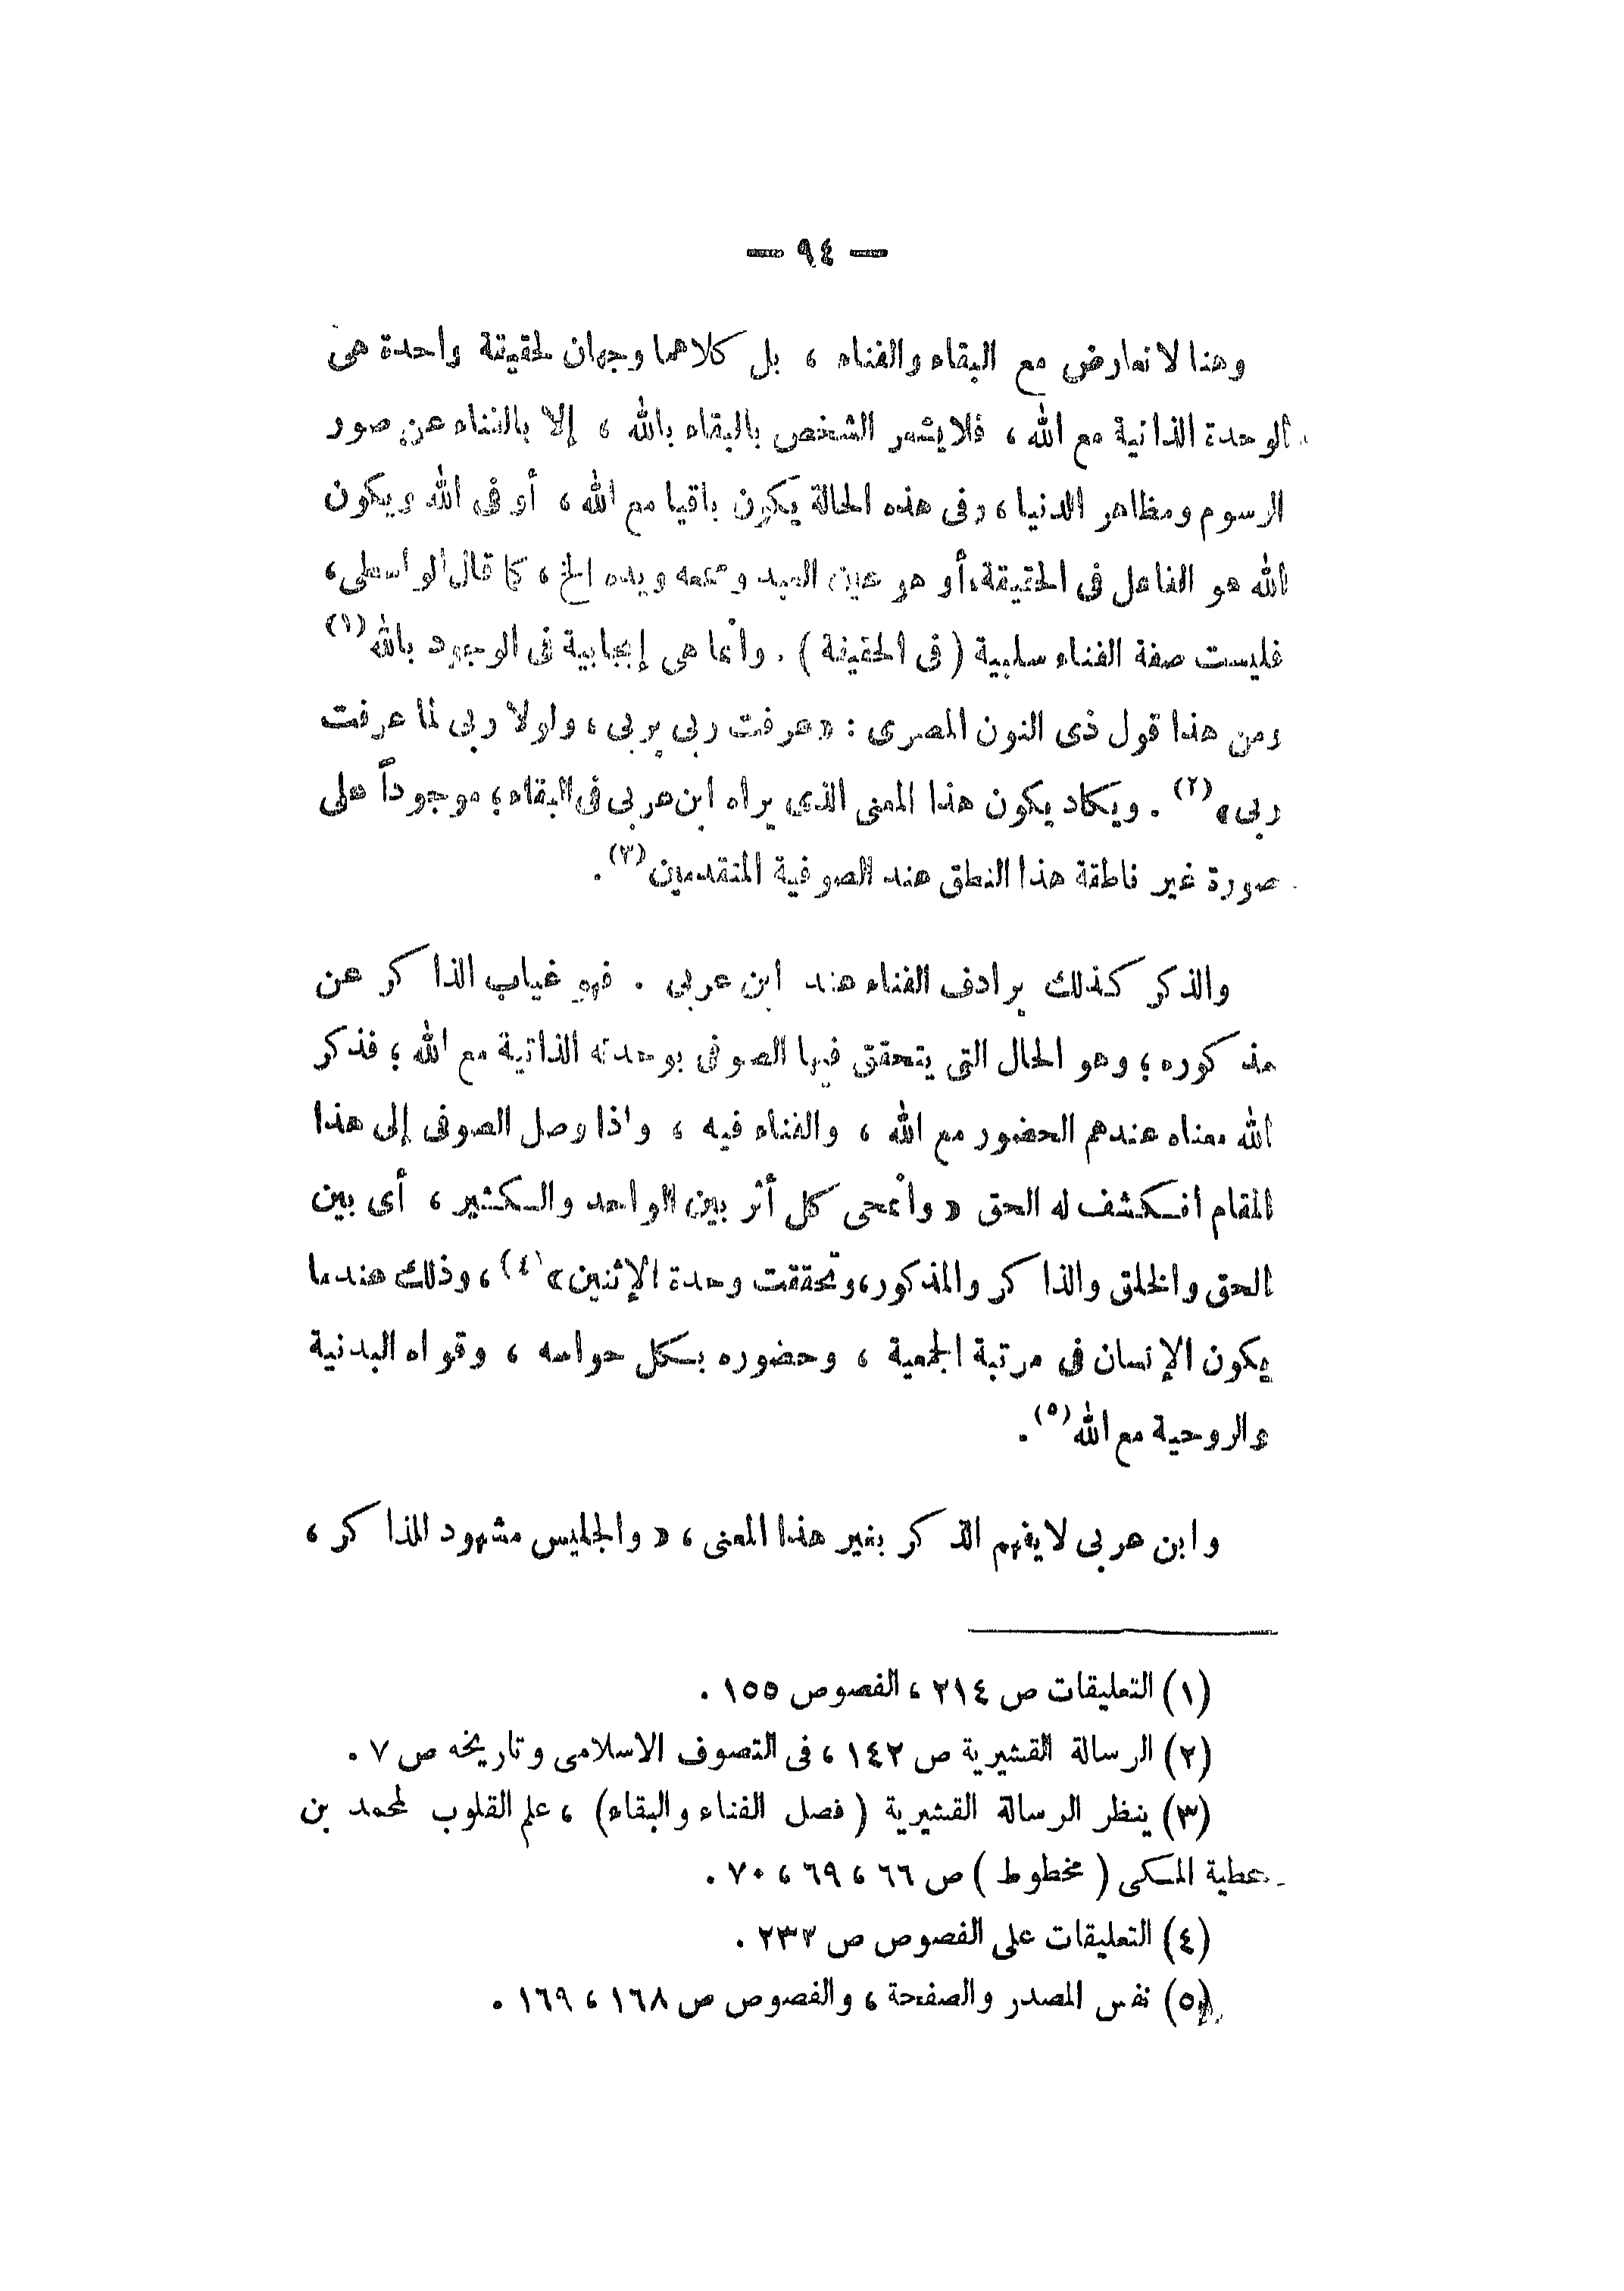 — ٩٤ —
وهنا لا تعارض مع البقاء والفناء ، بل كلاهما وجهان لحقيقة واحدة هى
الوحدة الذاتية مع الله ، فلا يشعر الشخص بالبقاء بالله ، إلا بالفناء عن صور
الرسوم ومظاهر الدنيا ، وفى هذه الحالة يكون باقيا مع الله ، أو فى الله ويكون
الله هو الفاعل فى الحقيقة ، أو هو عين العبد وسمعه ويده الخ ، كما قال الواسطى ،
فليست صفة الفناء سلبية ( فى الحقيقة ) . وانما هى إيجابية فى الوجود بالله (١)
ومن هذا قول ذى النون المصرى : « عرفت ربى بربى ، ولولا ربى لما عرفت
ربى » (٢) . ويكاد يكون هذا المعنى الذى يراه ابن عربى فى البقاء ؛ موجوداً على
صورة غير ناطقة هذا النطق عند الصوفية المتقدمين (٣) .
والذكر كذلك يرادف الفناء عند ابن عربى . فهو غياب الذاكر عن
مذكوره ؛ وهو الحال التى يتحقق فيها الصوفى بوحدته الذاتية مع الله ؛ فذكر
الله معناه عندهم الحضور مع الله ، والفناء فيه ، واذا وصل الصوفى إلى هذا
المقام انكشف له الحق « وانمحى كل أثر بين الواحد والكثير ، أى بين
الحق والخلق والذاكر والمذكور ، وتحققت وحدة الإثنين » (٤) ، وذلك عندما
يكون الإنسان فى مرتبة الجمعية ، وحضوره بكل حواسه ، وقواه البدنية
والروحية مع الله (٥) .
وابن عربى لا يفهم الذكر بغير هذا المعنى ، « والجليس مشهود الذاكر ،
(١) التعليقات ص ٢١٤ ، الفصوص ١٥٥ .
(٢) الرسالة القشيرية ص ١٤٢ ، فى التصوف الاسلامى وتاريخه ص ٧ .
(٣) ينظر الرسالة القشيرية ( فصل الفناء والبقاء ) ، علم القلوب لمحمد بن
عطية المكى ( مخطوط ) ص ٦٦ ، ٦٩ ، ٧٠ .
(٤) التعليقات على الفصوص ص ٢٣٢ .
(٥) نفس المصدر والصفحة ، والفصوص ص ١٦٨ ، ١٦٩ .